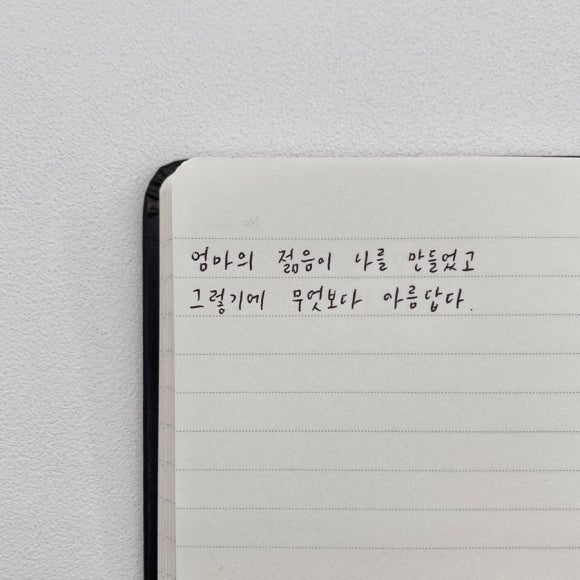 엄마의 젊음이 나를 만들었고
그렇기에 무엇보다 아름답다.